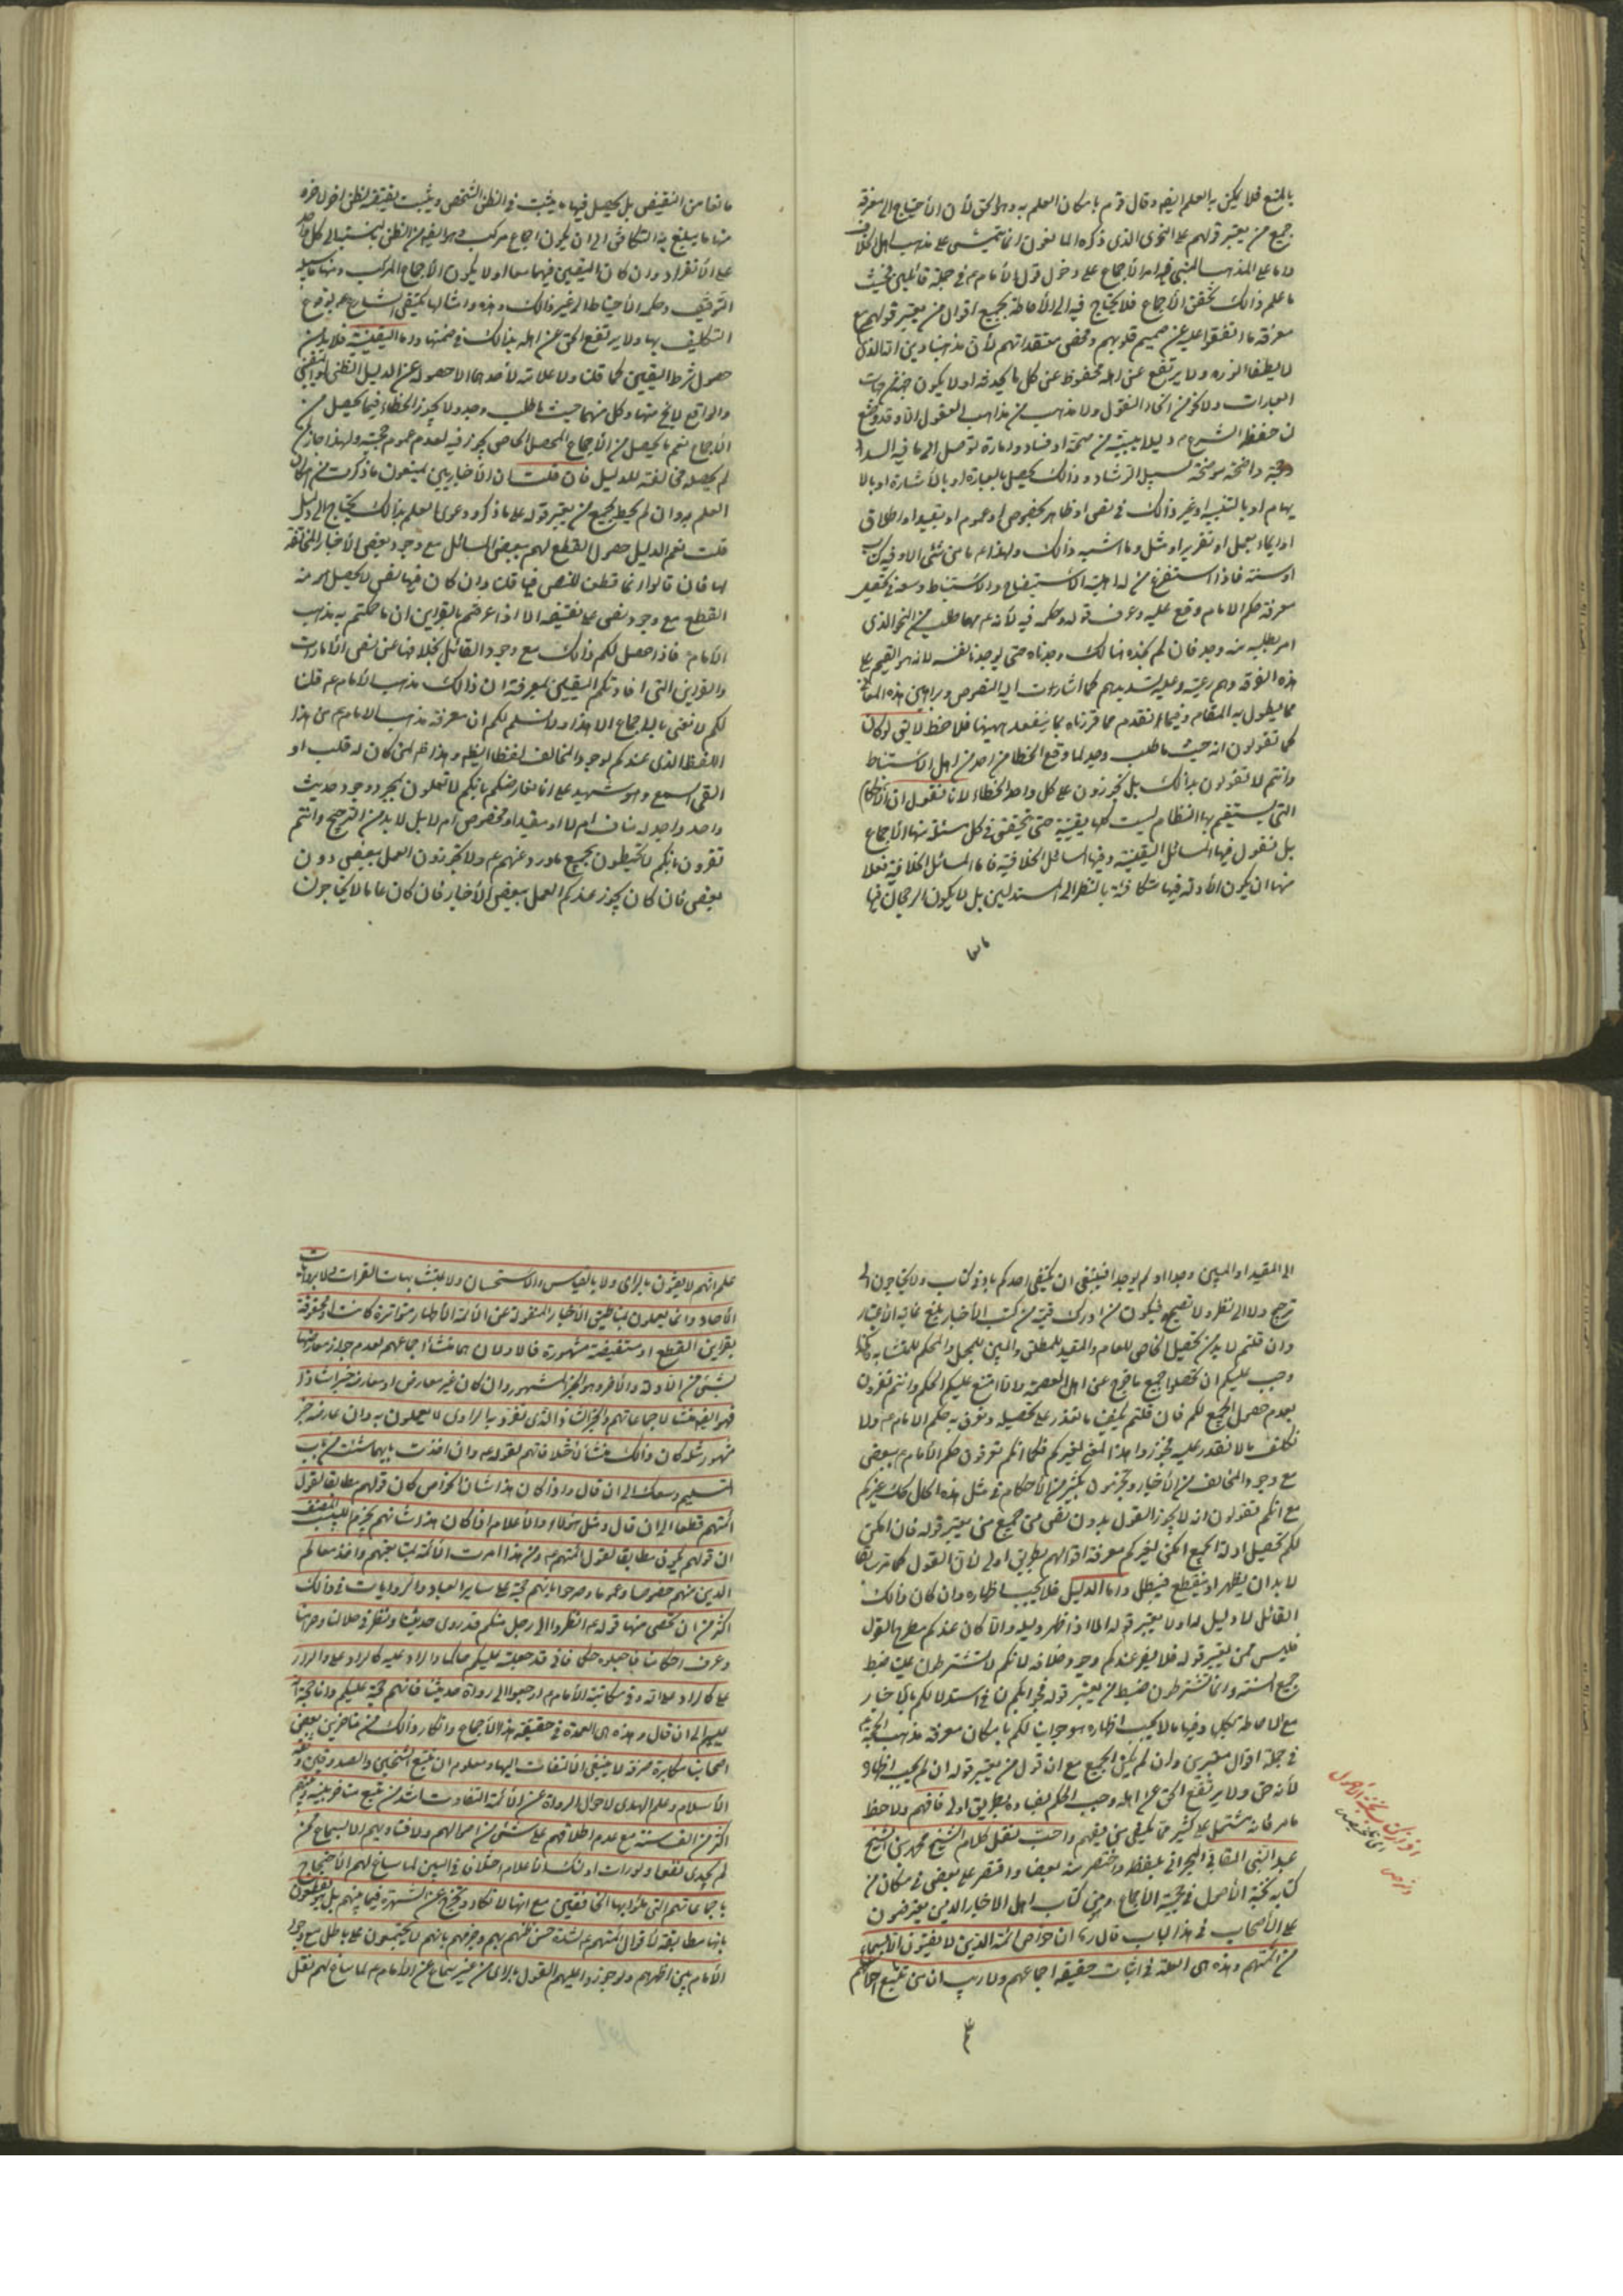 بالمنع فلا يمكن به العلم ايضا وقال قوم بامكان العلم به وهو الحق لأن الأحتياج الى معرفة
جميع من يعتبر قولهم على النحو الذى ذكره المانعون انما يتمشى على مذهب اهل الخلاف
واما على المذهب فمدار الأجماع على دخول قول الأمام ع في جملة قائلين فحيث
ما علم ذالك تحقق الأجماع فلا يحتاج فيه الى الأحاطة بجميع اقوال من يعتبر قولهم مع
معرفة ما اتفقوا عليه عن صميم قلوبهم ومحض معتقداتهم لأن مذهبنا دين الله الذى
لا يطفأ نوره ولا يرتفع عن اهله محفوظ عن كل ما
العبارات ولا من النقول ولا مذهب من مذاهب العقول الا وقد وضع
حفظة الشرع دليلا يبينه من صحة او فساد وامارة توصل الى ما فيه السداد
وحجة واضحة موضحة لسبيل الرشاد وذالك يحصل بالعبارة او بالأشارة او بالا
يهام او بالتنبيه او غير ذالك في نص او ظاهر بخصوص او عموم او بتقييد او اطلاق
او ايماء بعمل او تقرير او مثل وما اشبه ذالك ولهذا ما من شئ الا وفيه كتاب
او سنة فاذا استفرغ من له اهلية الأستيضاح والأستنباط وسعه في تحصيل
معرفة حكم الامام وقع عليه وعرف قوله وحكمه فيه لأنه ع مهما طلب من النحو الذى
امر بطلبه منه وجد فان لم يجده هنالك وجدناه حتى يوجدنا نفسه لانه هو القيم على
هذه الفرقة وهم رعيته وعليه تسديدهم كما اشارت اليه النصوص وبراهين هذه المعانى
مما يطول به المقام وفيما تقدم مما قررناه ما ينفعك ههنا فلاحظ لا يق لو كان
كما تقولون انه حيث ما طلب وجد لما وقع الخطا من احد من اهل الأستنباط
وانتم لا تقولون بذالك بل تجوزون على كل واحد الخطاء لانا نقول ان الأحكام
التى يستقيم بها النظام ليست كلها يقينية حتى يتحقق في كل مسئلة منها الأجماع
بل نقول فيها المسائل اليقينية وفيها المسائل الخلافية فاما المسائل الخلافية فعلا
منها ان يكون الأدلة فيها متكافئة بالنظر الى المستدلين بل لا يكون الرجحان فيها
مانعا من النقيض بل يحصل فيها ما يثبت في الظن الشخص ويثبت نقيضه لظن اخر
منها ما يبلغ به التكافئ الى ان يكون اجماع مركب وهو ايضا من الظن بالنسبة الى كل واحد
على الأنفراد وان كان اليقين فيهما معا او لا يكون الأجماع المركب ومنها ما سبيله
التوقف وحكمه الأحتياط الى غير ذالك وهذه وامثالها يكتفى الشارع ع بوقوع
التكليف بها ولا يرتفع الحق عن اهله بذالك في ضمنها واما اليقينية فلا بد من
حصول شرط اليقين كما قلنا ولا علامة لأحدهما الا حصوله عن الدليل الظنى او اليقينى
والواقع لا يخ منها وكل منهما حيث ما طلب وجد ولا يجوز الخطاء فيما يحصل من
الأجماع نعم ما يحصل من الأجماع المحصل الخاص يجوز فيه لعدم عموم حجيته ولهذا جاز لمن
لم يحصله مخالفته للدليل فان قلت ان الأخباريين يمنعون ما ذكرت من امكان
العلم به وان لم يحط بجميع من يعتبر قوله على ما ذكر ودعوى العلم بذالك يحتاج الى دليل
قلت نعم الدليل حصول القطع لهم ببعض المسائل مع وجود بعض الأخبار المخالفة
لها فان قالوا انما قطعنا للنص فيها قلنا وان كان فيها نص لا يحصل منه
القطع مع وجود نص على نقيضه الا اذا عرفتم بالقراين ان ما حكمتم به مذهب
الأمام ع فاذا حصل لكم ذالك مع وجود القائل بخلافها عن نص الأمارات
والقراين التى افادتكم اليقين لمعرفة ان ذالك مذهب الأمام ع قلنا
لكم لا نعنى بالاجماع الا هذا ولا نسلم لكم ان معرفة مذهب الامام ع من هذا
اللفظ الذى عندكم لوجود المخالف لفظا وهذا ظهر لمن كان له قلب او
القى السمع وهو شهيد على انا نعارضكم بانكم لا تعملون بمجرد وجود حديث
واحد واحد له مناف ام لا او مقيد او مخصوص ام لا بل لا بد من الترجيح وانتم
تقرون بانكم لا تحيطون بجميع ما ورد عنهم ع ولا تجوزون العمل ببعض دون
بعض فان كان يجوز عندكم العمل ببعض الأخبار فان كان عاما لا يحتاجون
الى المقيد او المبين وجد او لم يوجد فينبغى ان يكتفى احدكم باى كتاب ولا يحتاجون الى
ترجيح ولا الى نظر ولا تصحيح فيكون من ادرك من كتب الأخبار بلغ غاية الأعتبار
وان قلتم لا بد من تحصيل الخاص للعام والمقيد للمطلق والمبين للمجمل والمحكم للمتشابه
وجب عليكم ان تحصلوا جميع ما خرج عن اهل العصمة والا امتنع عليكم الحكم وانتم تقرون
بعدم حصول الجميع لكم فان قلتم يكفينا ما نقدر على تحصيله ونعرف به حكم الامام ع ولا
نكلف ما لا نقدر عليه فجوزوا هذا المعنى لغيركم فكما انكم تعرفون حكم الأمام ع ببعض
مع وجود المخالف من الأخبار وتجزمون بكثير من الأحكام في مثل هذه الحال كذلك غيركم
مع انكم تقولون انه لا يجوز القول بدون نص من جميع من يعتبر قوله فان امكن
لكم تحصيل ادلة الجميع امكن لغيركم معرفة اقوالهم بطريق اولى لأن القول كما مر سابقا
لا بد ان يظهر او ينقطع فيبطل واما الدليل فلا يجب اظهاره وان كان ذالك
القائل لا دليل له ولا يعتبر قوله الا اذا ظهر دليله والا كان عندكم مطرح القول
فليس ممن يعتبر قوله فلا يضر عندكم وجود خلافه لانكم لا تشترطون علينا ضبط
جميع السنة وانما تشترطون ضبط من يعتبر قوله فجوابكم لنا في استدلالكم بالأخبار
مع الاحاطة بكلها وفيها ما لا يجب اظهاره هو جوابنا لكم بامكان معرفة مذهب الحجة
في جملة اقوال معتبرين وان لم يكن الجميع مع ان قول من يعتبر قوله ان لم يجب اظهاره
لأنه حق ولا يرتفع الحق عن اهله وجب الحكم بفساده بطريق اولى فافهم ولاحظ
ما مر فانه مشتمل على كثير مما يكفى من يفهم واحب نقل كلام الشيخ محمد بن الشيخ
عبد النبى المقابى البحرانى بلفظه واختصر منه بعضا واقتصر على بعض في مكان من
كتابه نخبة الأصول في حجية الأجماع ومن كتاب اهل الاخبار الذين يعترضون
على الأصحاب في هذا الباب قال ره ان خواص ائمتنا الذين لا يفتون الا بالسماع
من ائمتهم وهذه هى العلة في اثبات حقيقة اجماعهم ولا ريب ان من تتبع احوالهم
علم انهم لا يفتون بالراى ولا بالقياس والأستحسان ولا بمتشابهات القرآن ولا بروايات
الأحاد وانما يعملون بما طبق الأخبار المنقولة عن الأئمة الأطهار متواترة كانت او محفوفة
بقراين القطع او مستفيضة مشهورة فالاولان هما منشأ اجماعهم لعدم جواز معارضتهما
بشئ من الأدلة والأخر وهو الخبر المشهور وان كان غير معارض او معارضه خبرا شاذا
فهو ايضا منشأ لاجماعاتهم والخبر الشاذ الذى تفرد به الراوى لا يعملون به وان عارضه خبر
مشهور مثله كان ذالك منشأ لأختلافاتهم لقوله ع وان اخذت بايهما شئت من باب
التسليم وسعك الى ان قال واذا كان هذا شان الخواص كان قولهم مطابقا لقول
ائمتهم قطعا الى ان قال ومثل هؤلاء الأعلام اذا كان هذا شانهم يجزم اللبيب المنصف
ان قولهم يكون مطابقا لقول ائمتهم ع ومن هذا امرت الأئمة بمتابعتهم واخذ معالم
الدين منهم خصوصا وعموما وصرحوا بانهم حجة على ساير العباد والروايات في ذالك
اكثر من ان تحصى منها قوله ع انظروا الى رجل منكم قد روى حديثنا ونظر في حلالنا وحرامنا
وعرف احكامنا فاجعلوه حكما فانى قد جعلته عليكم حاكما والراد عليه كالراد علينا والراد
علينا كالراد على الله وفي مكاتبة الأمام ع ارجعوا الى رواة حديثنا فانهم حجة عليكم وانا حجة الله
عليهم الى ان قال وهذه هى العمدة في حقيقة هذا الأجماع وانكار ذالك من متاخرى بعض
اصحابنا مكابرة صرفة لا ينبغى الألتفات اليها ومعلوم ان تتبع الشيخين والصدوقين وثقة
الأسلام وعلم الهدى لاحوال الرواة عن الأئمة الثقات اشد من تتبع متاخر بينه وبينهم
اكثر من الف سنة مع عدم اطلاعهم على شئ من احوالهم ولا فتاويهم الا بسماع ممن
لم يجدى نفعا ولو رات اولئك الأعلام اختلاف في البين لما ساغ لهم الأحتجاج
باجماعاتهم التى بلوا بها المخالفين مع انها لا تكاد وتخرج عن الشهرة فيما بينهم بل يقطعون
بانها مطابقة لأقوال ائمتهم ع لشدة حسن ظنهم بهم وجزمهم بانهم لا يجتمعون على باطل مع وجود
الأمام بين اظهرهم ولو جوزوا عليهم القول بالراى من غير سماع عن الأمام ع لما ساغ لهم نقل